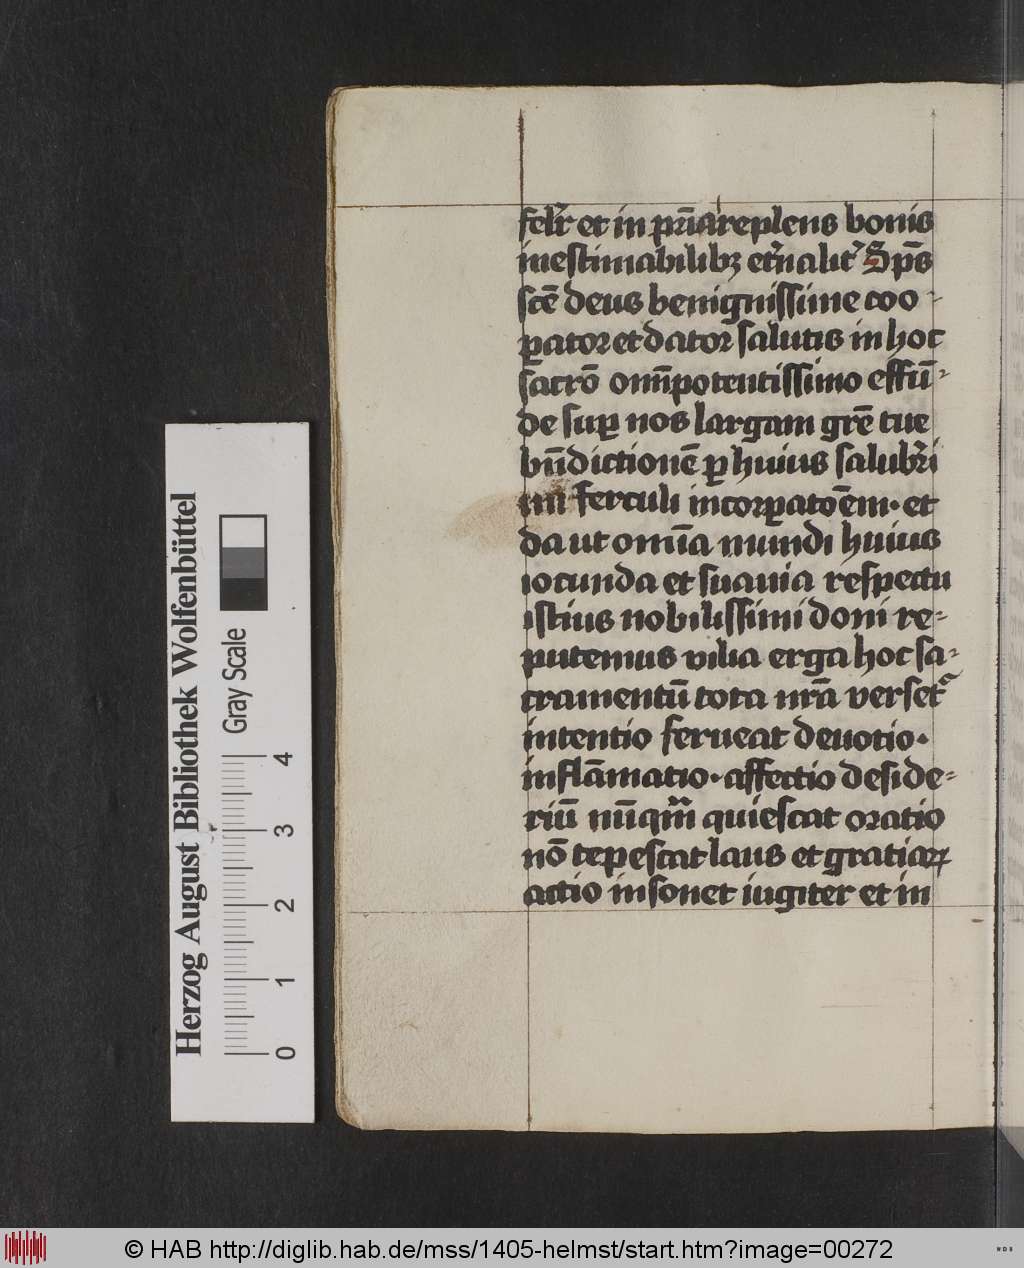 felr̄ et in pr̄ia replens bonis
inestimabilibꝫ et̓nalit̓ Sp̄s
sc̄e deus benignissime coo-
ꝑator et dator salutis in hoc
sacrō omīpotentissimo effū-
de suꝑ nos largam gr̄e tue
bn̄dictionē ꝑ huius salubr̓i
mi ferculi incorꝑatōem· et
da ut omīa mundi huius
iocunda et suauia respectu
istius nobilissimi doni re-
putemus vilia erga hoc sa-
cramentū tota nr̄a verset᷑
intentio ferueat deuotio·
inflāmatio· affectio deside-
riū nūqm̄ quiescat oratio
nō tepescat laus et gratiaꝝ
actio insonet iugiter et in
Herzog August Bibliothek Wolfenbüttel
Gray Scale
0 1 2 3 4
© HAB http://diglib.hab.de/mss/1405-helmst/start.htm?image=00272